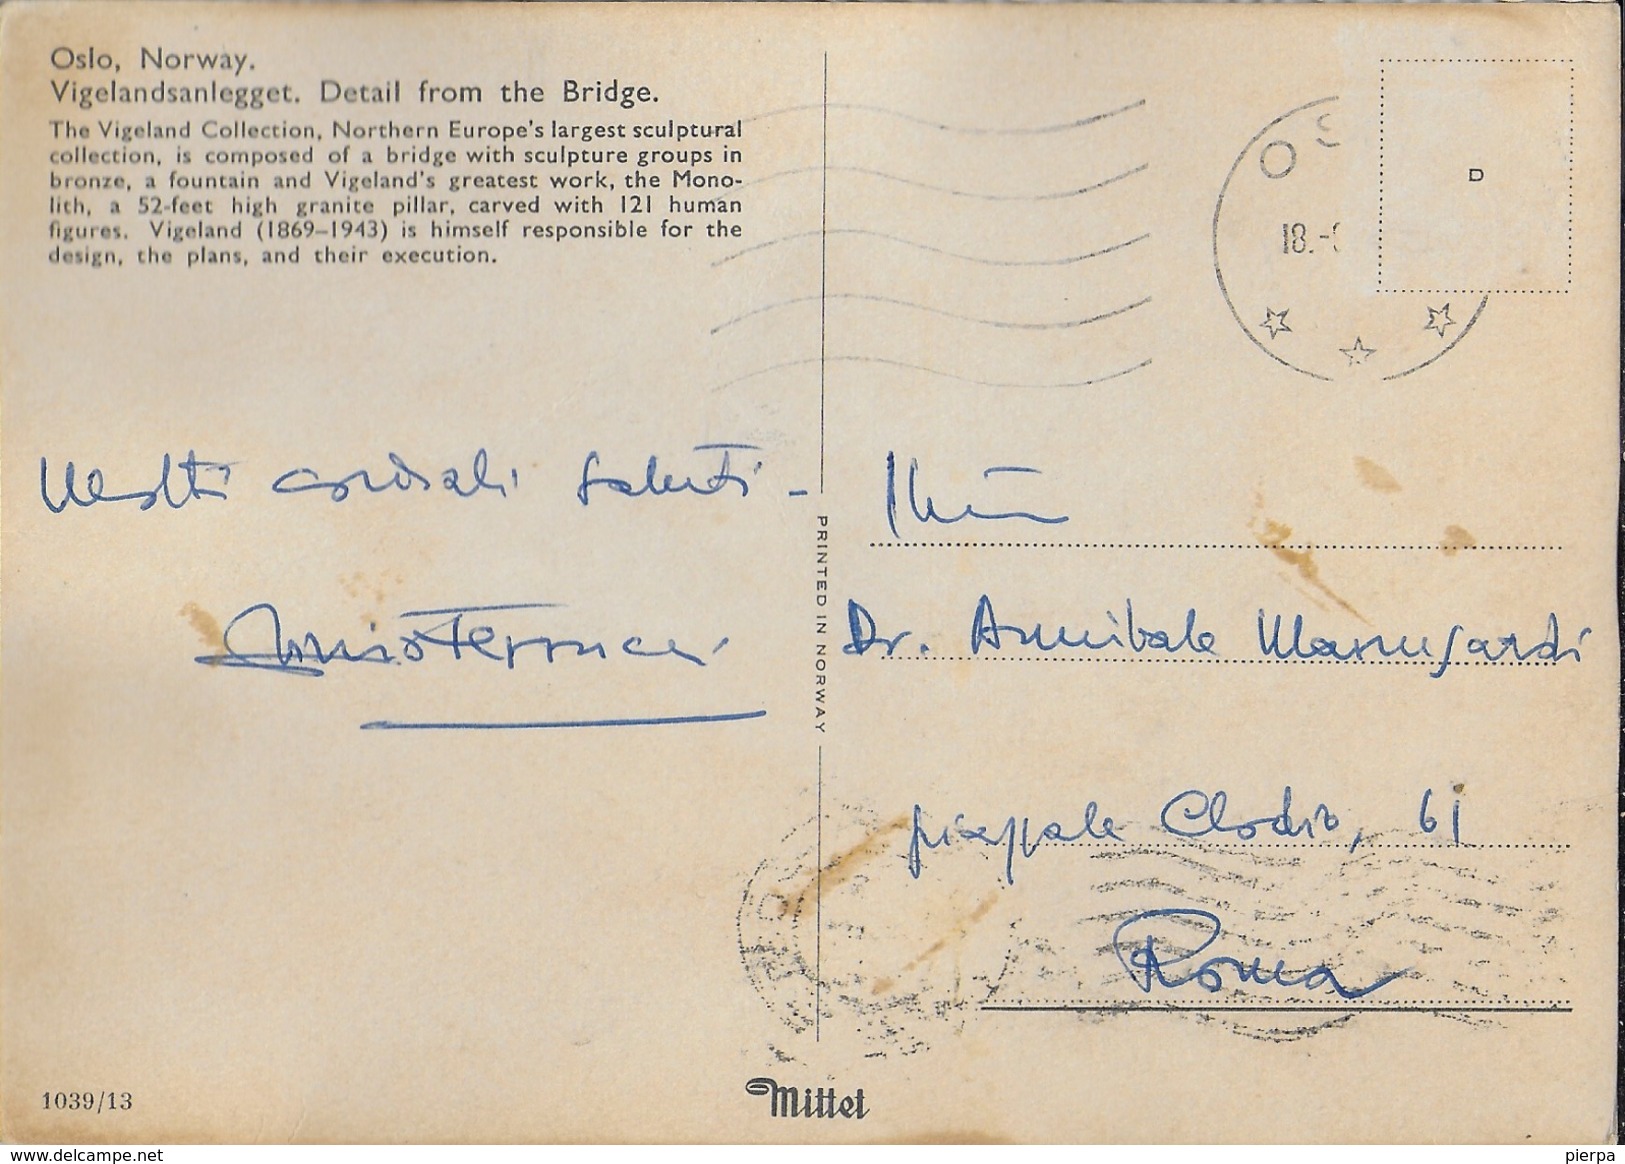 Oslo, Norway.
Vigelandsanlegget. Detail from the Bridge.
The Vigeland Collection, Northern Europe's largest sculptural
collection, is composed of a bridge with sculpture groups in
bronze, a fountain and Vigeland's greatest work, the Mono-
lith, a 52-feet high granite pillar, carved with 121 human
figures. Vigeland (1869–1943) is himself responsible for the
design, the plans, and their execution.
OS
18.-
D
Molti cordiali saluti -
PRINTED IN NORWAY
Dr. Annibale
piazzale Clodio, 61
Roma
1039/13
Mittet
www.delcampe.net
pierpa